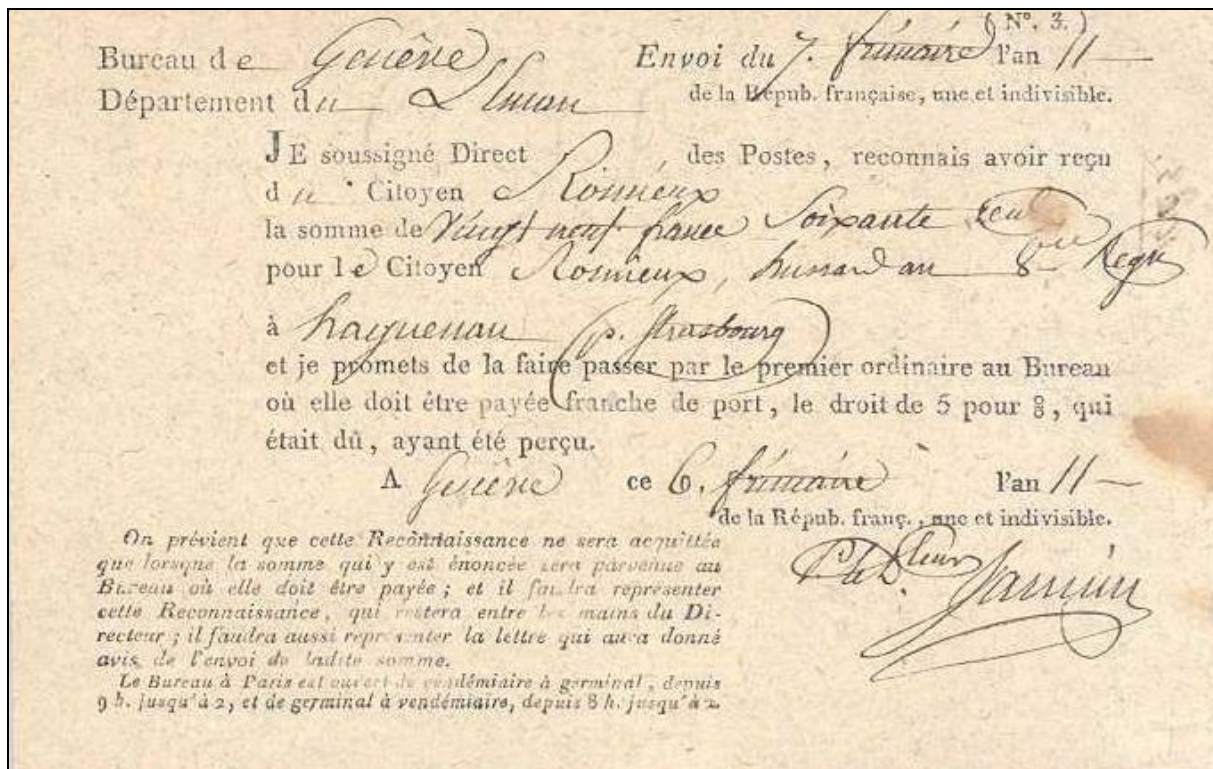 (N°. 3.)
Bureau de Genêve Envoi du 7. frimaire l'an 11
Département du Léman de la Répub. française, une et indivisible.
JE soussigné Direct des Postes, reconnais avoir reçu
du Citoyen Romieux
la somme de Vingt neuf francs Soixante Cent
pour le Citoyen Romieux, hussard au 8me Regt
à haguenau (p. Strasbourg)
et je promets de la faire passer par le premier ordinaire au Bureau
où elle doit être payée franche de port, le droit de 5 pour %, qui
était dû, ayant été perçu.
A Genêve ce 6. frimaire l'an 11
de la Répub. franç., une et indivisible.
On prévient que cette Reconnaissance ne sera acquittée
que lorsque la somme qui y est énoncée sera parvenue au
Bureau où elle doit être payée; et il faudra représenter
cette Reconnaissance, qui restera entre les mains du Di-
recteur; il faudra aussi représenter la lettre qui aura donné
avis de l'envoi de ladite somme.
Le Bureau à Paris est ouvert de vendémiaire à germinal, depuis
9 h. jusqu'à 2, et de germinal à vendémiaire, depuis 8 h. jusqu'à 2